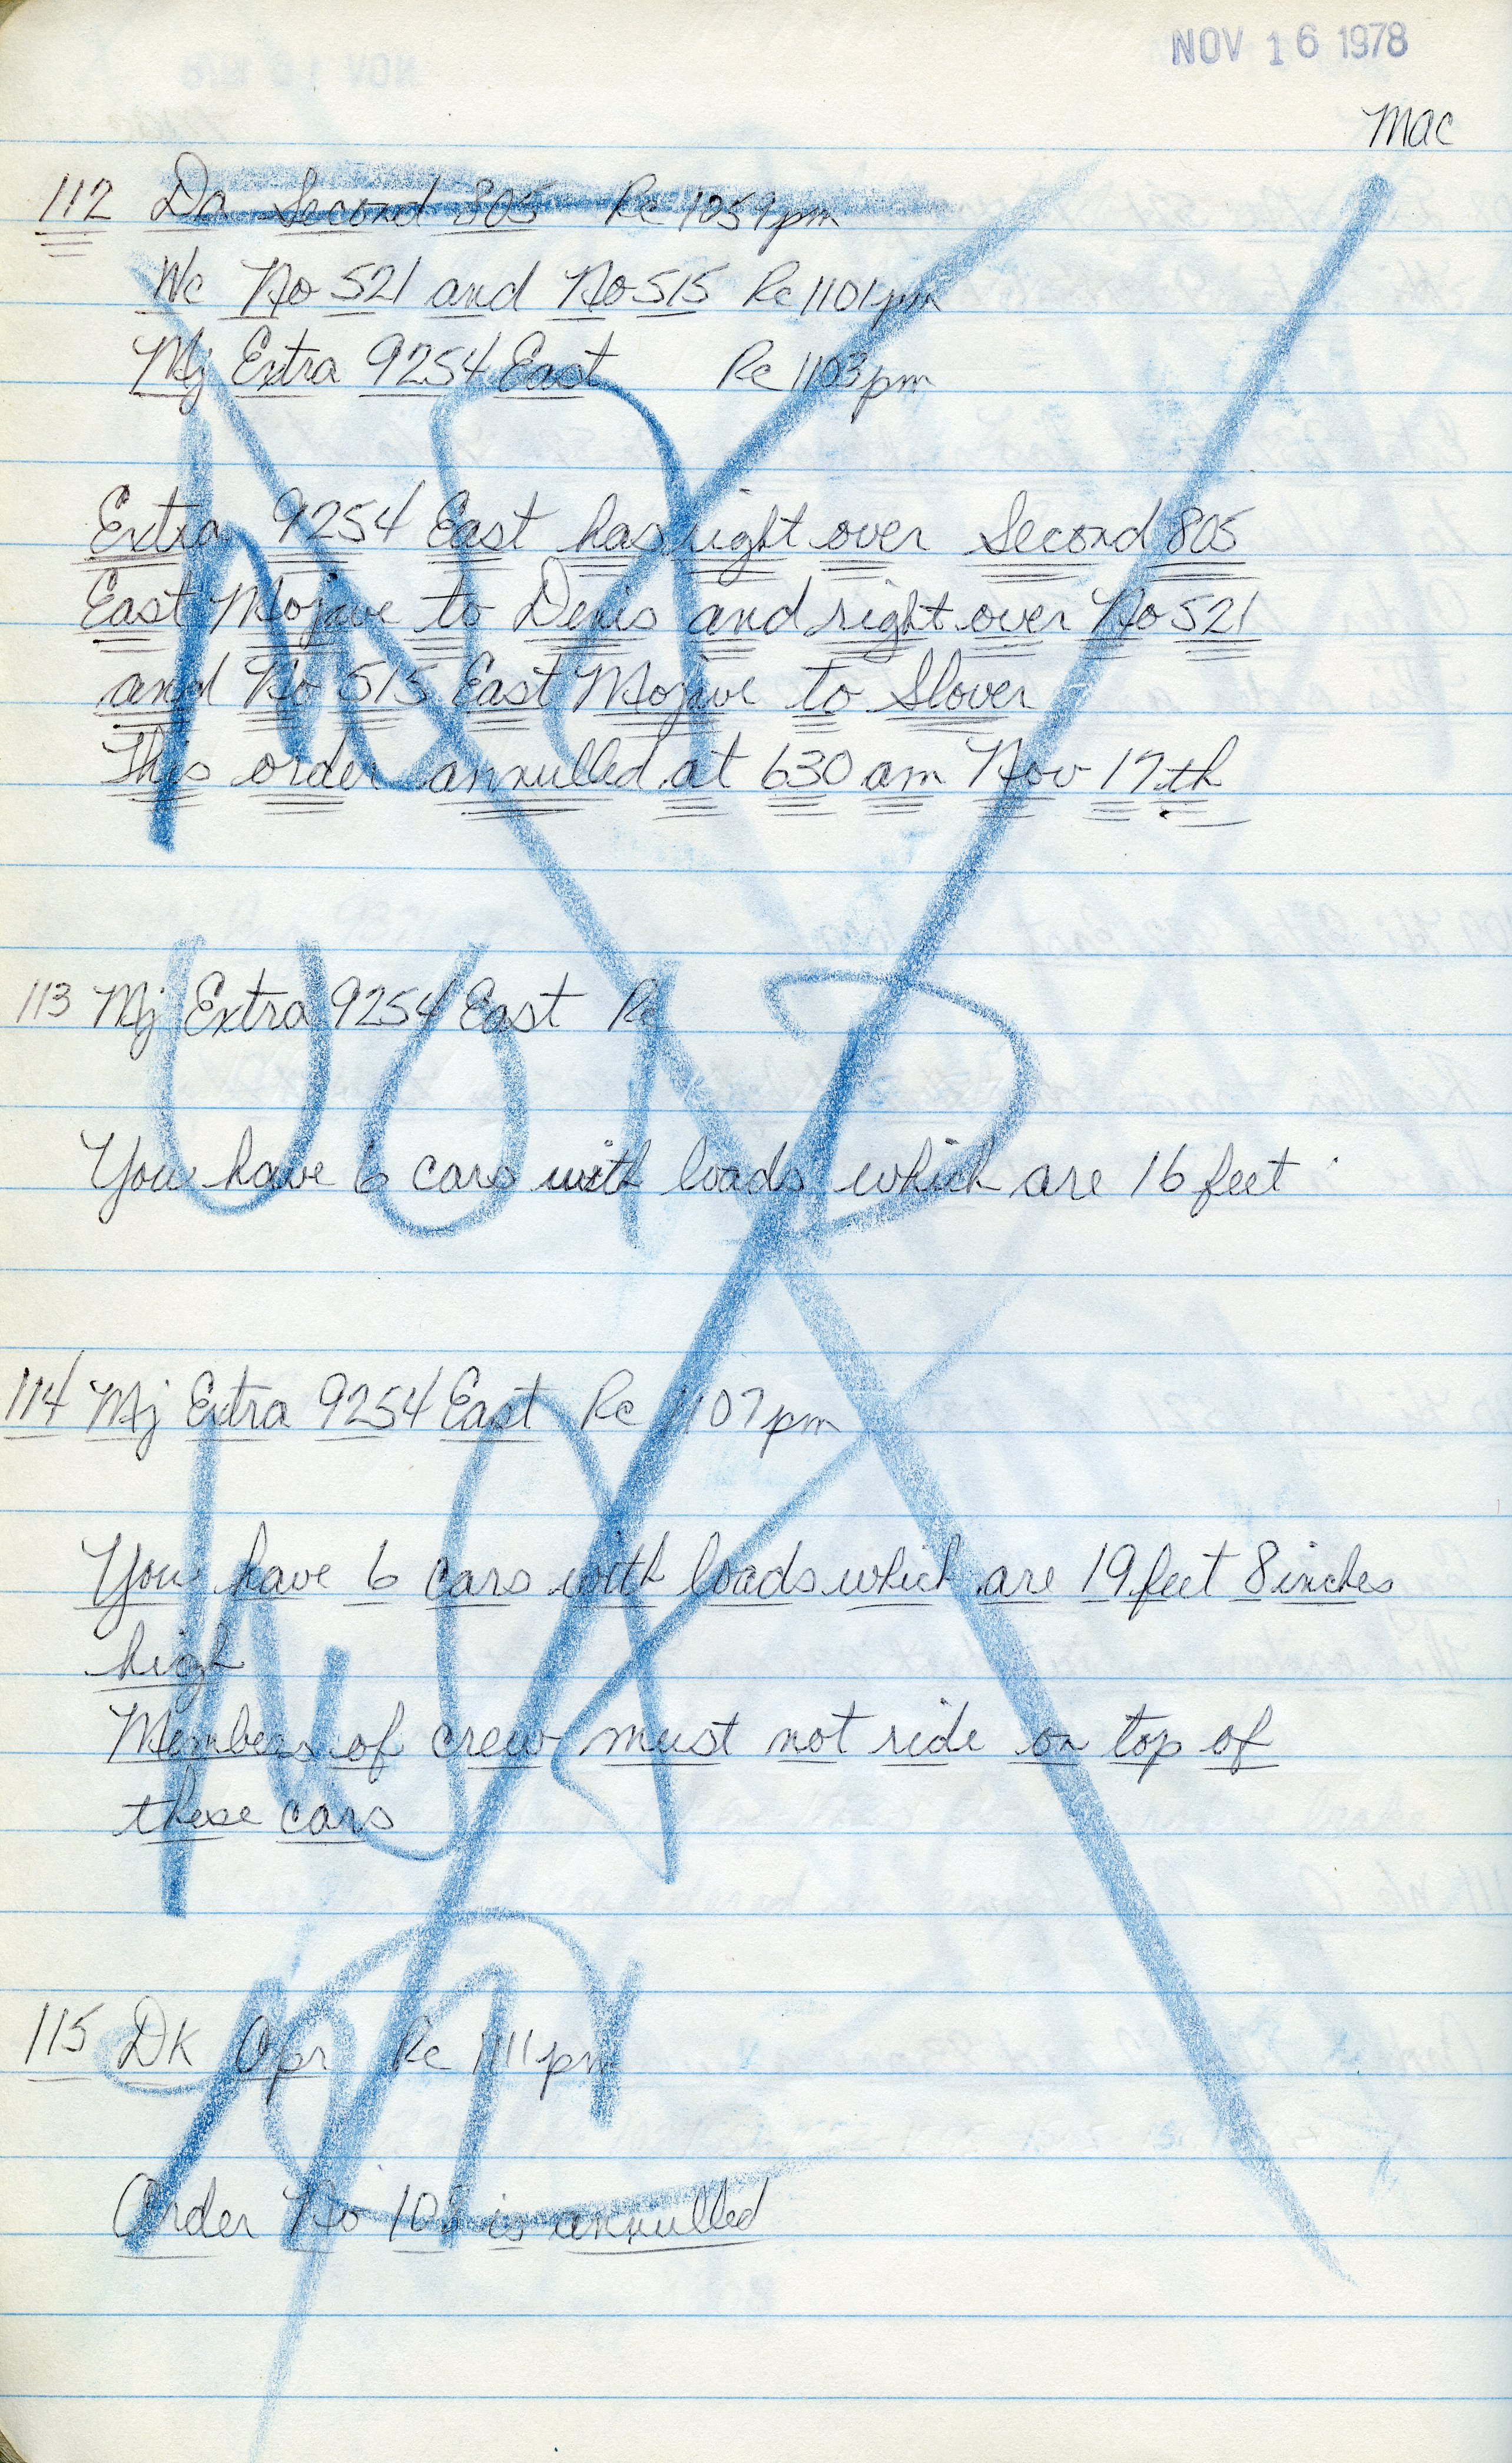 NOV 16 1978
Mac
112 Da Second 805 Rc 1059pm
Wc No 521 and No 515 Rc 1101pm
Mj Extra 9254 East Rc 1103pm
Extra 9254 East has right over Second 805
East Mojave to Denis and right over No 521
and No 515 East Mojave to Slover
This order annulled at 630 am Nov 17th
113 Mj Extra 9254 East Rc
VOID
You have 6 cars with loads which are 16 feet
114 Mj Extra 9254 East Rc 1107pm
You have 6 cars with loads which are 19 feet 8 inches
high
Members of crew must not ride on top of
these cars
115 DK Opr Rc 1111pm
Order No is annulled